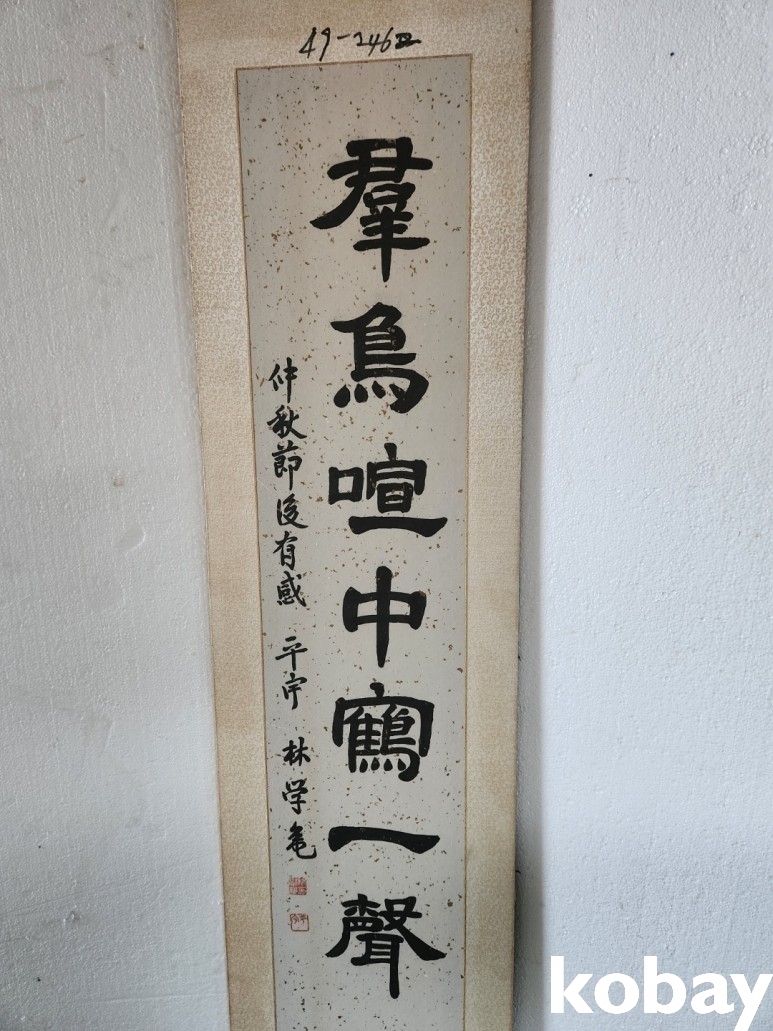 49-246
羣鳥喧中鶴一聲
仲秋節後有感 平宇 林学
kobay